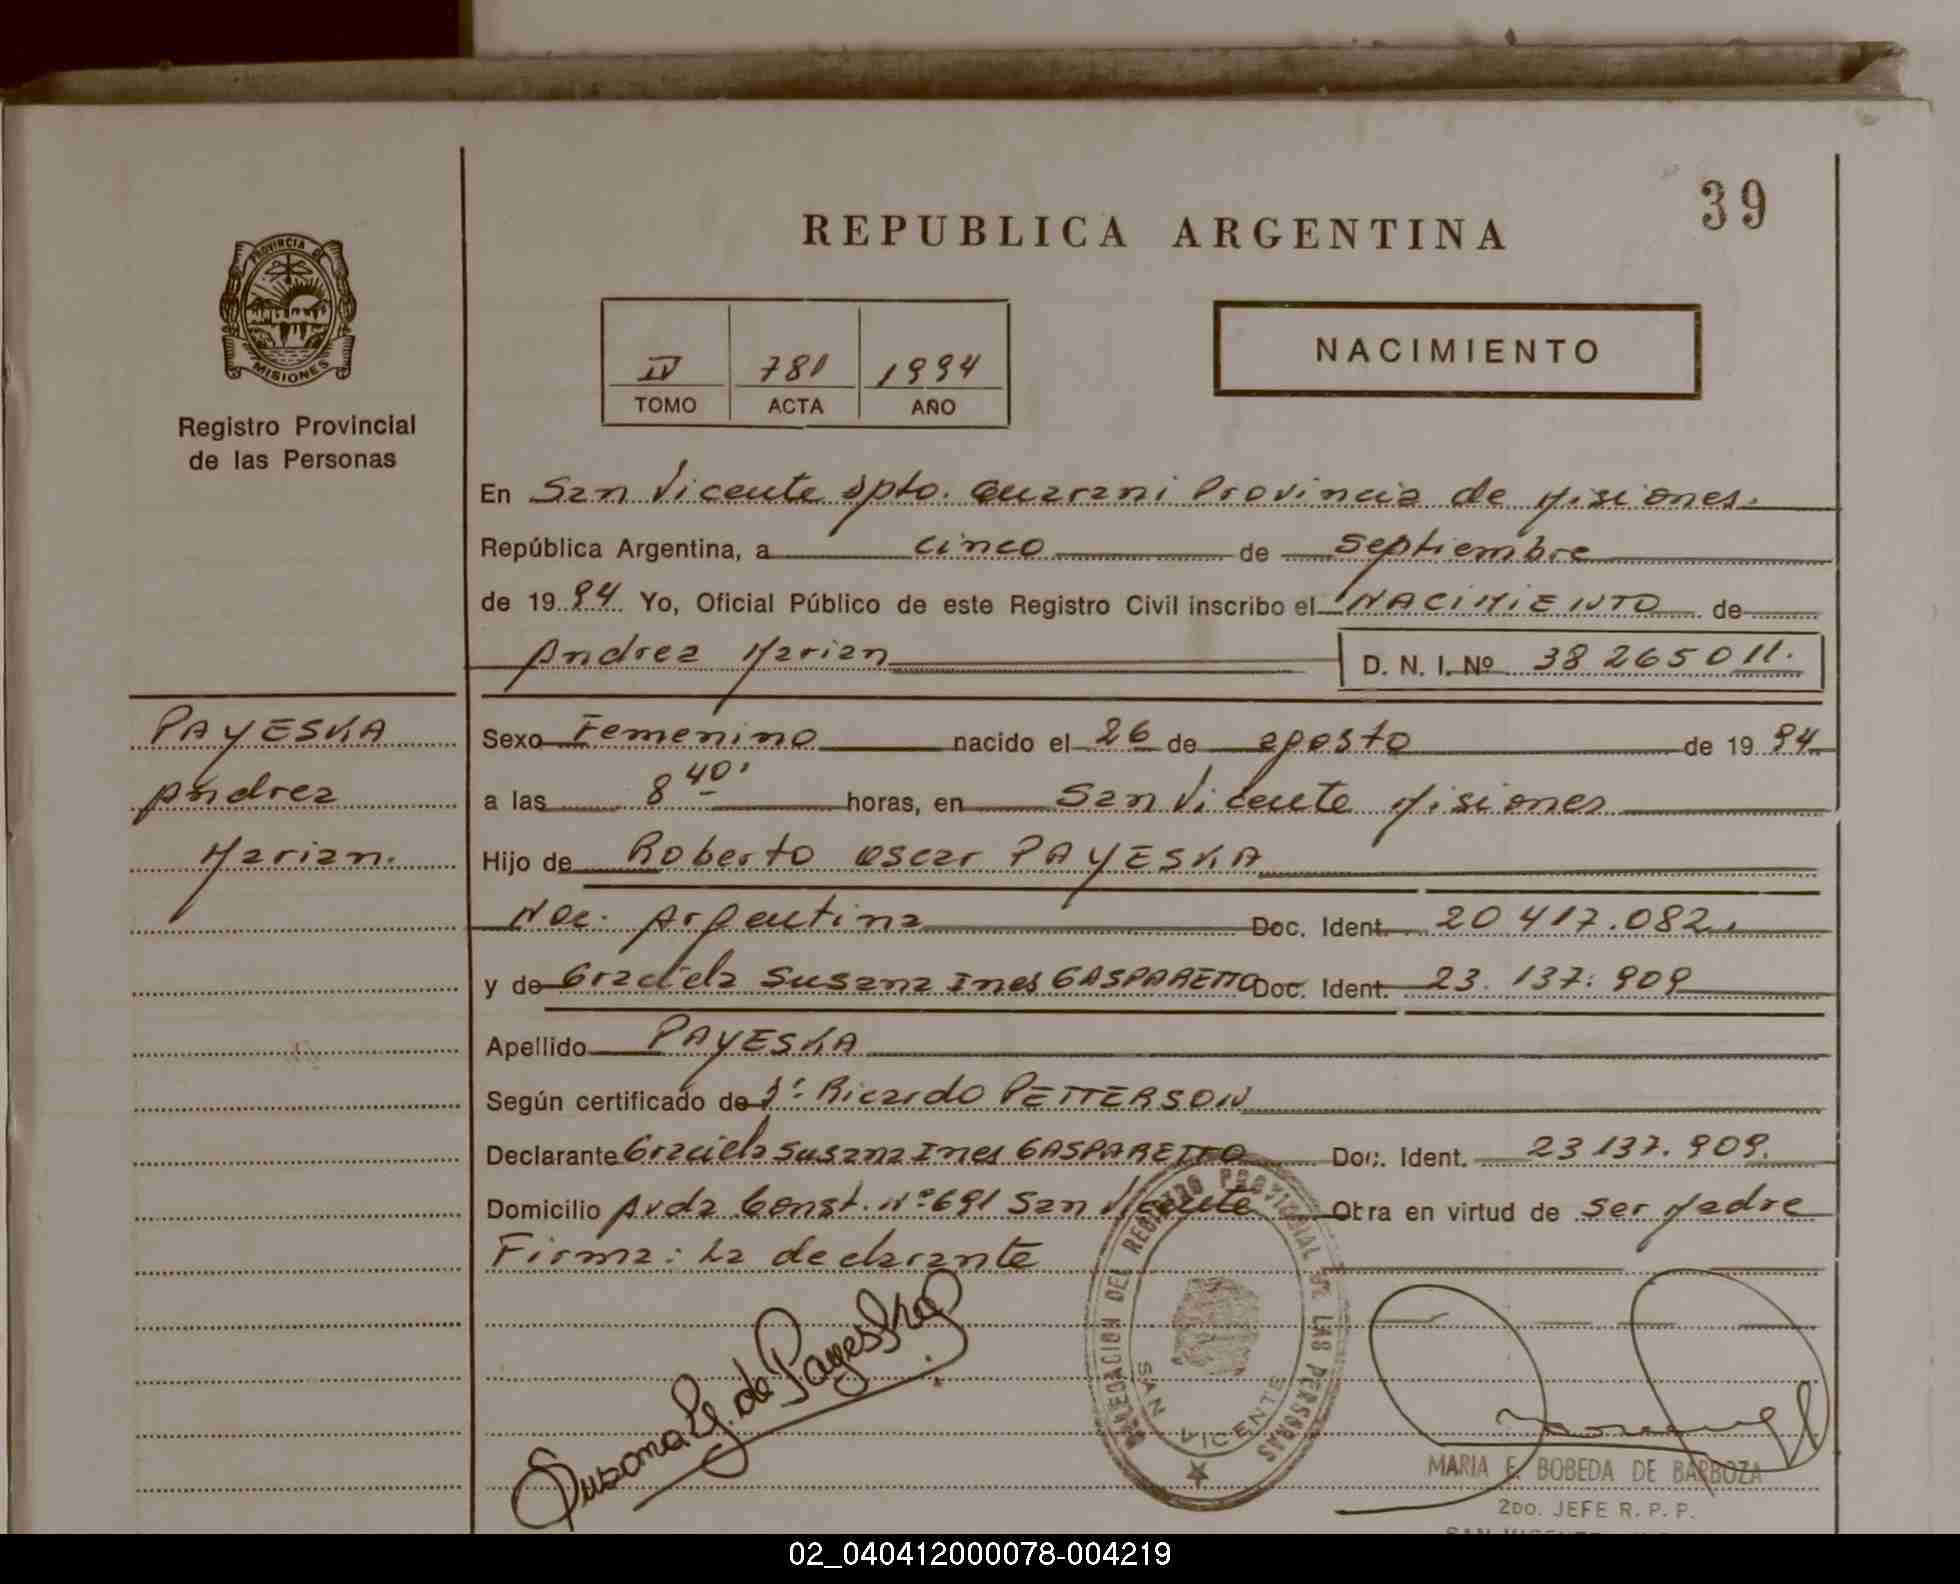 39
REPUBLICA ARGENTINA
PROVINCIA DE
MISIONES
Registro Provincial
de las Personas
IV 781 1994
TOMO ACTA AÑO
NACIMIENTO
En San Vicente Dpto. Guarani Provincia de Misiones.
República Argentina, a cinco de Septiembre
de 1994 Yo, Oficial Público de este Registro Civil inscribo el NACIMIENTO de
Andrea Marian D. N. I. Nº 38 265 011.
PAYESKA
Andrea
Marian.
Sexo Femenino nacido el 26 de agosto de 1994
a las 8 40' horas, en San Vicente Misiones
Hijo de Roberto Oscar PAYESKA
Nac. Argentina Doc. Ident. 20 417.082.
y de Graciela Susana Ines GASPARETTO Doc. Ident. 23.137.909
Apellido PAYESKA
Según certificado de Dr. Ricardo PETTERSON
Declarante Graciela Susana Ines GASPARETTO Doc. Ident. 23 137.909.
Domicilio Avda Const. Nº 691 San Vicente Obra en virtud de ser Madre
Firma: La declarante
Susana G. de Payeska
DELEGACION DEL REGISTRO PROVINCIAL DE LAS PERSONAS
SAN VICENTE
MARIA E. BOBEDA DE BARBOZA
2DO. JEFE R. P. P.
02_040412000078-004219